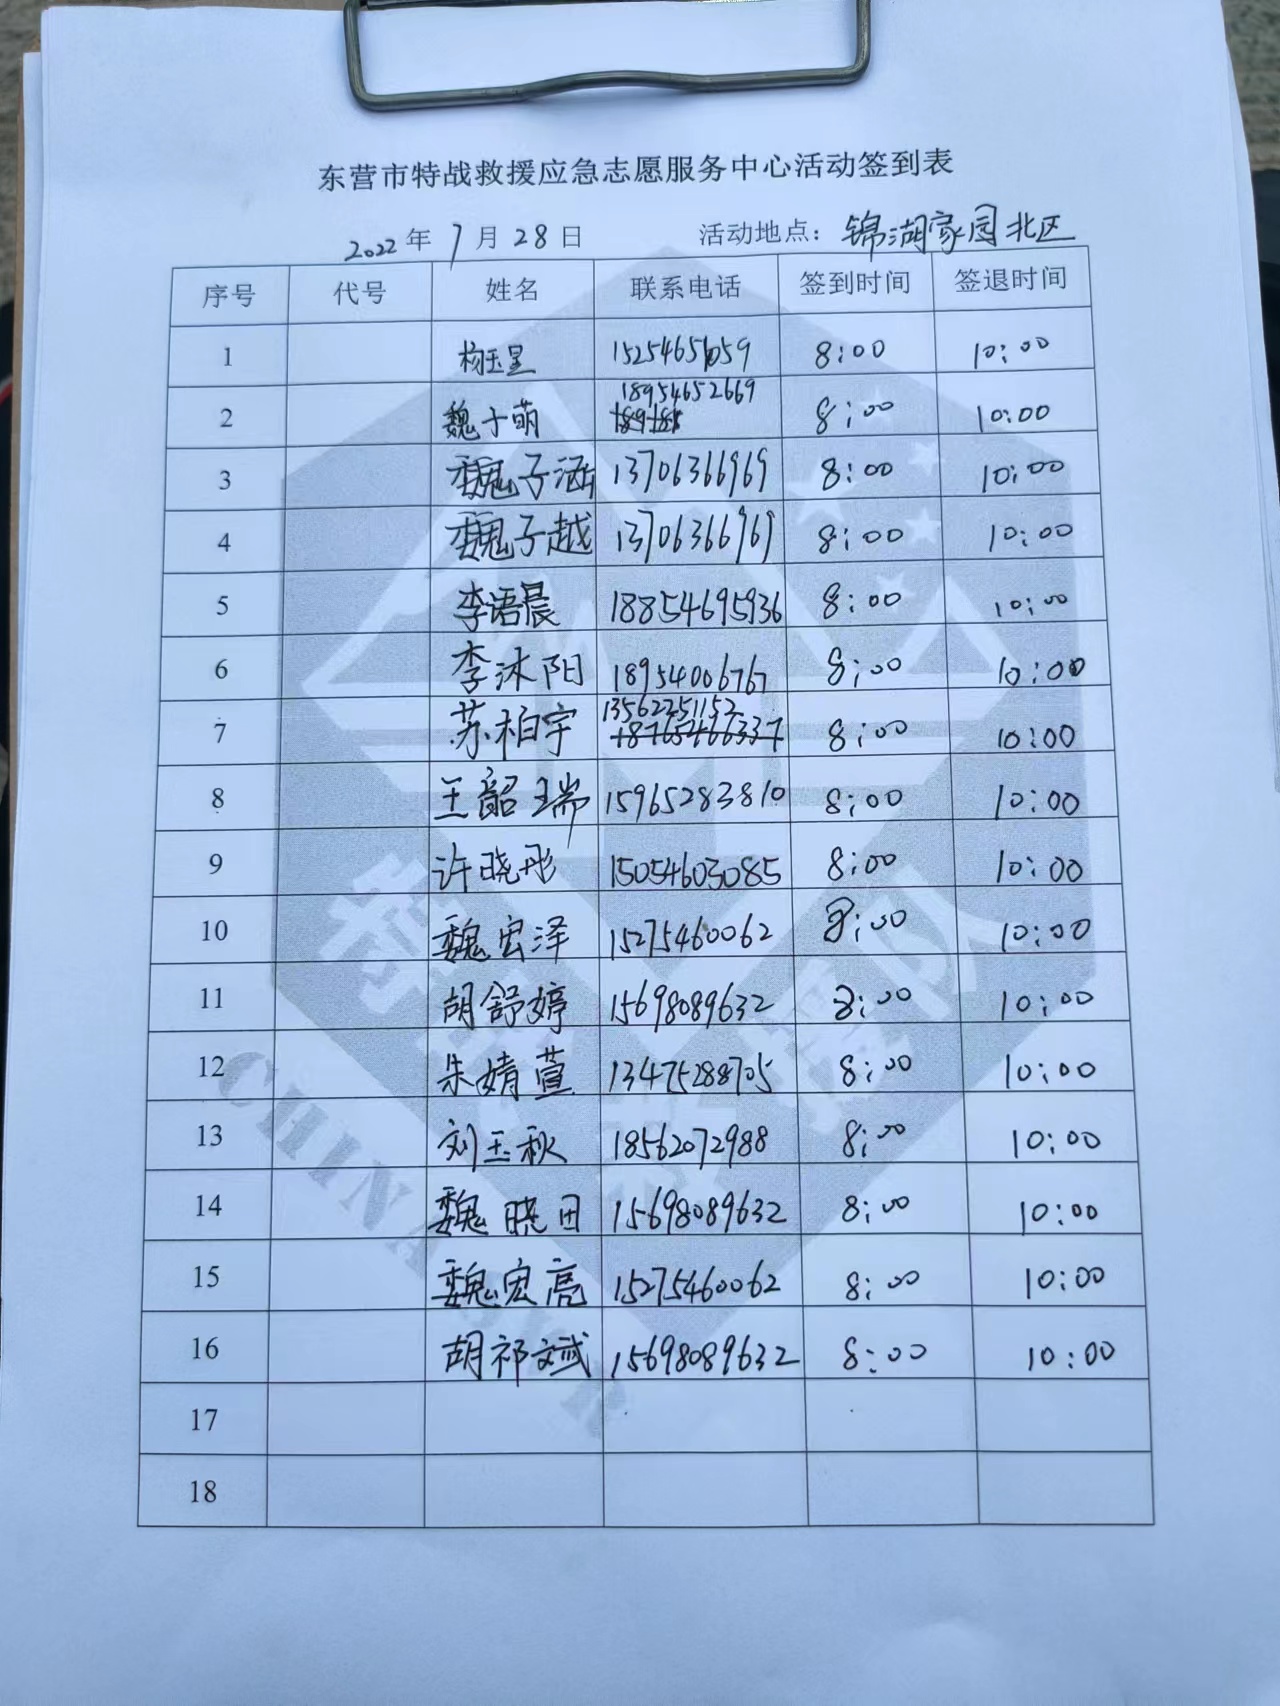 东营市特战救援应急志愿服务中心活动签到表
2022年7月28日 活动地点：锦湖家园北区
序号 代号 姓名 联系电话 签到时间 签退时间
1 杨玉呈 8:00 10:00
18954652669
2 魏于萌 8:00 10:00
3 魏子涵 13706366969 8:00 10:00
4 魏子越 13706366969 8:00 10:00
5 李语晨 18854695936 8:00 10:00
6 李沐阳 18954006767 8:00 10:00
13562251152
7 苏柏宇 18765466337 8:00 10:00
8 王韶瑞 15965283810 8:00 10:00
9 许晓彤 15054603085 8:00 10:00
10 魏宏泽 15275460062 8:00 10:00
11 胡舒婷 15698089632 8:00 10:00
12 朱婧萱 13475288705 8:00 10:00
13 刘玉秋 18562072988 8:00 10:00
14 魏晓田 15698089632 8:00 10:00
15 魏宏亮 15275460062 8:00 10:00
16 胡祁斌 15698089632 8:00 10:00
17
18
特战救援队
CHINA SWR